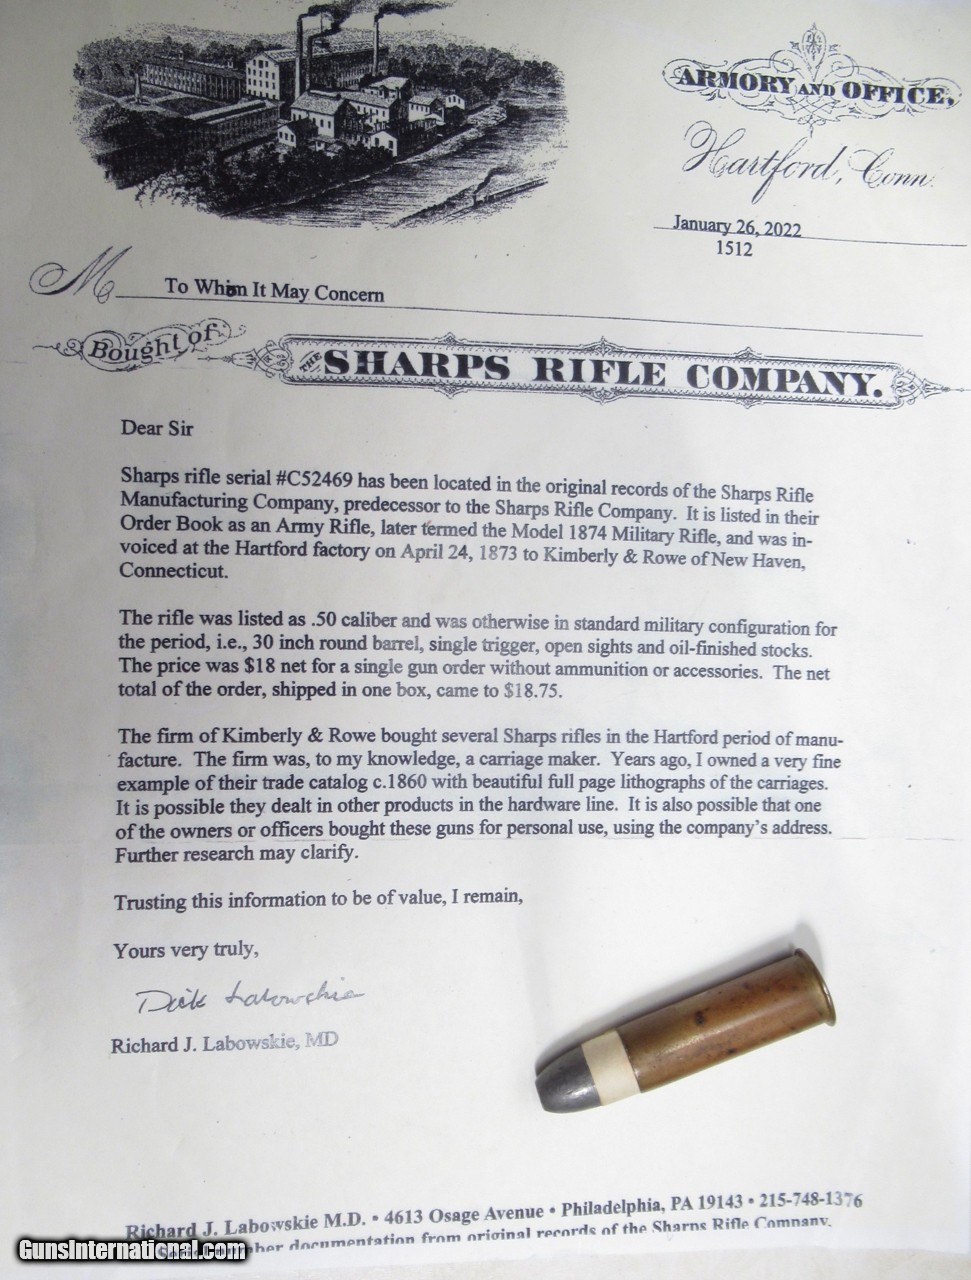 ARMORY AND OFFICE,
Hartford, Conn.
January 26, 2022
1512
M To Whom It May Concern
Bought of:
THE SHARPS RIFLE COMPANY.
Dear Sir
Sharps rifle serial #C52469 has been located in the original records of the Sharps Rifle
Manufacturing Company, predecessor to the Sharps Rifle Company. It is listed in their
Order Book as an Army Rifle, later termed the Model 1874 Military Rifle, and was in-
voiced at the Hartford factory on April 24, 1873 to Kimberly & Rowe of New Haven,
Connecticut.
The rifle was listed as .50 caliber and was otherwise in standard military configuration for
the period, i.e., 30 inch round barrel, single trigger, open sights and oil-finished stocks.
The price was $18 net for a single gun order without ammunition or accessories. The net
total of the order, shipped in one box, came to $18.75.
The firm of Kimberly & Rowe bought several Sharps rifles in the Hartford period of manu-
facture. The firm was, to my knowledge, a carriage maker. Years ago, I owned a very fine
example of their trade catalog c.1860 with beautiful full page lithographs of the carriages.
It is possible they dealt in other products in the hardware line. It is also possible that one
of the owners or officers bought these guns for personal use, using the company's address.
Further research may clarify.
Trusting this information to be of value, I remain,
Yours very truly,
Dick Labowskie
Richard J. Labowskie, MD
Richard J. Labowskie M.D. • 4613 Osage Avenue • Philadelphia, PA 19143 • 215-748-1376
documentation from original records of the Sharps Rifle Company.
GunsInternational.com